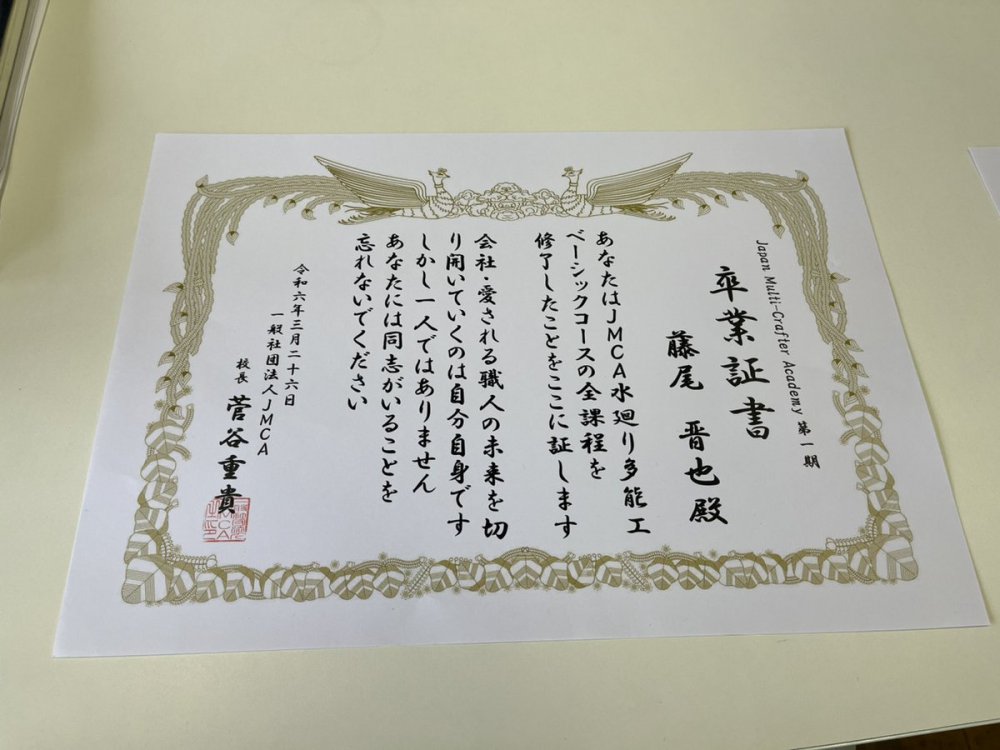 Japan Multi-Crafter Academy 第一期
卒業証書
藤尾 晋也殿
あなたはJMCA水廻り多能工
ベーシックコースの全課程を
修了したことをここに証します
会社・愛される職人の未来を切
り開いていくのは自分自身です
しかし一人ではありません
あなたには同志がいることを
忘れないでください
令和六年三月二十六日
一般社団法人JMCA
校長 菅谷重貴
JMCA